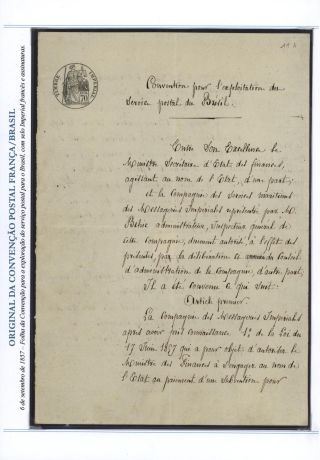 ORIGINAL DA CONVENÇÃO POSTAL FRANÇA/BRASIL
6 de setembro de 1857 - Folha da Convenção para a exploração do serviço postal para o Brasil, com selo Imperial francês e assinaturas.
TIMBRE IMPERIAL
Convention pour l'exploitation du
Service postal du Brésil.
Entre Son Excellence le
Ministre Secrétaire d'Etat des finances,
agissant au nom de l'Etat, d'une part;
et la Compagnie des Services maritimes
des Messageries Impériales représentée par M.
administrateur, Inspecteur général de
cette Compagnie, dument autorisé à l'effet des
présentes, par la délibération du Conseil
d'administration de la Compagnie, d'autre part;
Il a été convenu ce qui suit:
Article premier
La Compagnie des Messageries Impériales
après avoir pris connaissance 1º de la Loi du
17 Juin 1857 qui a pour objet d'autoriser le
Ministre des Finances à s'engager au nom de
l'Etat au paiement d'une Subvention pour